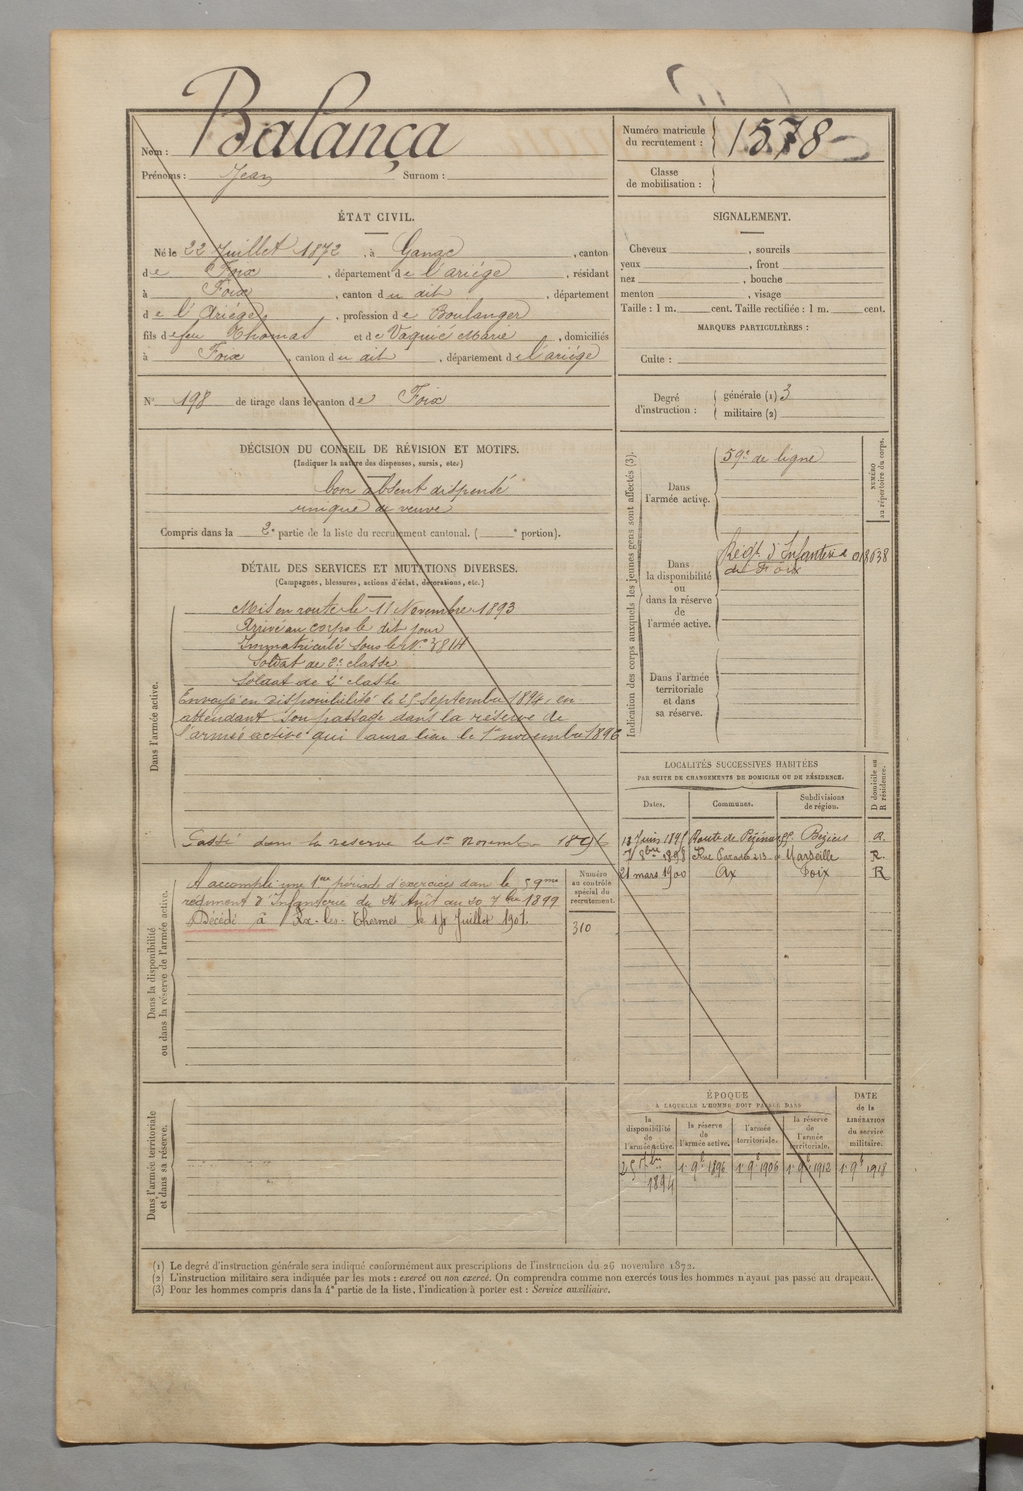 Nom : Balança
Prénoms : Jean Surnom :
Numéro matricule du recrutement : 1578
Classe de mobilisation :
ÉTAT CIVIL.
Né le 22 Juillet 1872, à Ganac, canton
de Foix, département de l'ariège, résidant
à Foix, canton du dit, département
de l'Ariège, profession de Boulanger
fils de feu Thomas et de Vaquié Marie, domiciliés
à Foix, canton du dit, département de l'ariège
N° 198 de tirage dans le canton de Foix
SIGNALEMENT.
Cheveux , sourcils
yeux , front
nez , bouche
menton , visage
Taille : 1 m. cent. Taille rectifiée : 1 m. cent.
MARQUES PARTICULIÈRES :
Culte :
Degré d'instruction : générale (1) 3
militaire (2)
DÉCISION DU CONSEIL DE RÉVISION ET MOTIFS.
(Indiquer la nature des dispenses, sursis, etc.)
bon absent dispensé
unique de veuve
Compris dans la 2e partie de la liste du recrutement cantonal. ( e portion).
DÉTAIL DES SERVICES ET MUTATIONS DIVERSES.
(Campagnes, blessures, actions d'éclat, décorations, etc.)
Dans l'armée active.
Mis en route le 11 Novembre 1893
Arrivé au corps le dit jour
Immatriculé sous le N° 3814
Soldat de 2e classe
Soldat de 2e classe
Envoyé en disponibilité le 25 Septembre 1894, en
attendant son passage dans la réserve de
l'armée active qui aura lieu le 1er novembre 1896
Passé dans la réserve le 1er Novembre 1896
Dans la disponibilité ou dans la réserve de l'armée active.
A accompli une 1ère période d'exercices dans le 59me
régiment d'Infanterie du 24 Août au 20 7bre 1899
Décédé à Ax-les-Thermes le Juillet 1901.
Numéro au contrôle spécial du recrutement.
310
Dans l'armée territoriale et dans sa réserve.
Indication des corps auxquels les jeunes gens sont affectés (3).
NUMÉRO au répertoire du corps.
Dans l'armée active.
59e de ligne
Dans la disponibilité ou dans la réserve de l'armée active.
Régt d'Infanterie 018038
de Foix
Dans l'armée territoriale et dans sa réserve.
LOCALITÉS SUCCESSIVES HABITÉES
PAR SUITE DE CHANGEMENTS DE DOMICILE OU DE RÉSIDENCE.
Dates. Communes. Subdivisions de région. D domicile ou R résidence.
Juin 1895 Route de Pézénas Béziers R.
7 8bre 1898 Rue Marseille R.
21 mars 1900 Ax Foix R
ÉPOQUE
À LAQUELLE L'HOMME DOIT PASSER DANS
la disponibilité de l'armée active.
la réserve de l'armée active.
l'armée territoriale.
la réserve de l'armée territoriale.
DATE de la LIBÉRATION du service militaire.
25 7bre 1894 1er 9b 1896 1er 9b 1906 1er 9b 1912 1er 9b 1918
(1) Le degré d'instruction générale sera indiqué conformément aux prescriptions de l'instruction du 26 novembre 1872.
(2) L'instruction militaire sera indiquée par les mots : exercé ou non exercé. On comprendra comme non exercés tous les hommes n'ayant pas passé au drapeau.
(3) Pour les hommes compris dans la 4e partie de la liste, l'indication à porter est : Service auxiliaire.